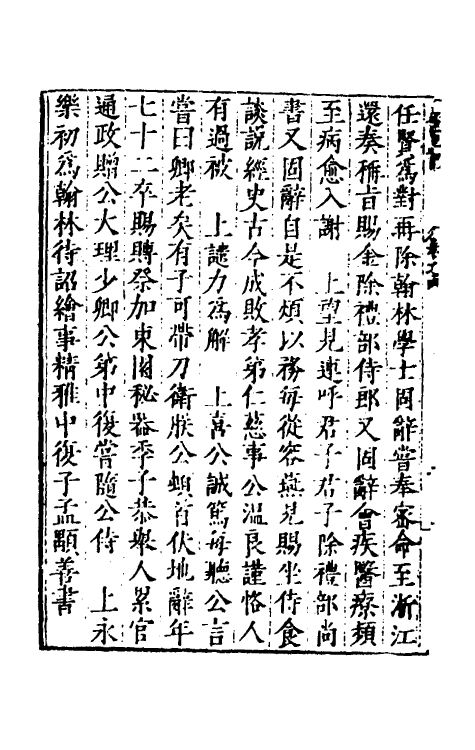 任賢爲對再除翰林學士固辭嘗奉密命至浙江
還奏稱旨賜金除禮部侍郎又固辭會疾醫療頻
至病愈入謝　上望見連呼君子君子除禮部尚
書又固辭自是不煩以務每從容燕見賜坐侍食
談說經史古今成敗孝弟仁慈事公溫良謹恪人
有過被　上譴力爲解　上喜公誠篤每聽公言
嘗曰卿老矣有子可帶刀衛朕公頓首伏地辭年
七十二卒賜賻祭加東園秘器季子恭舉人累官
通政贈公大理少卿公弟中復嘗隨公侍　上永
樂初爲翰林待詔繪事精雅中復子孟顒善書